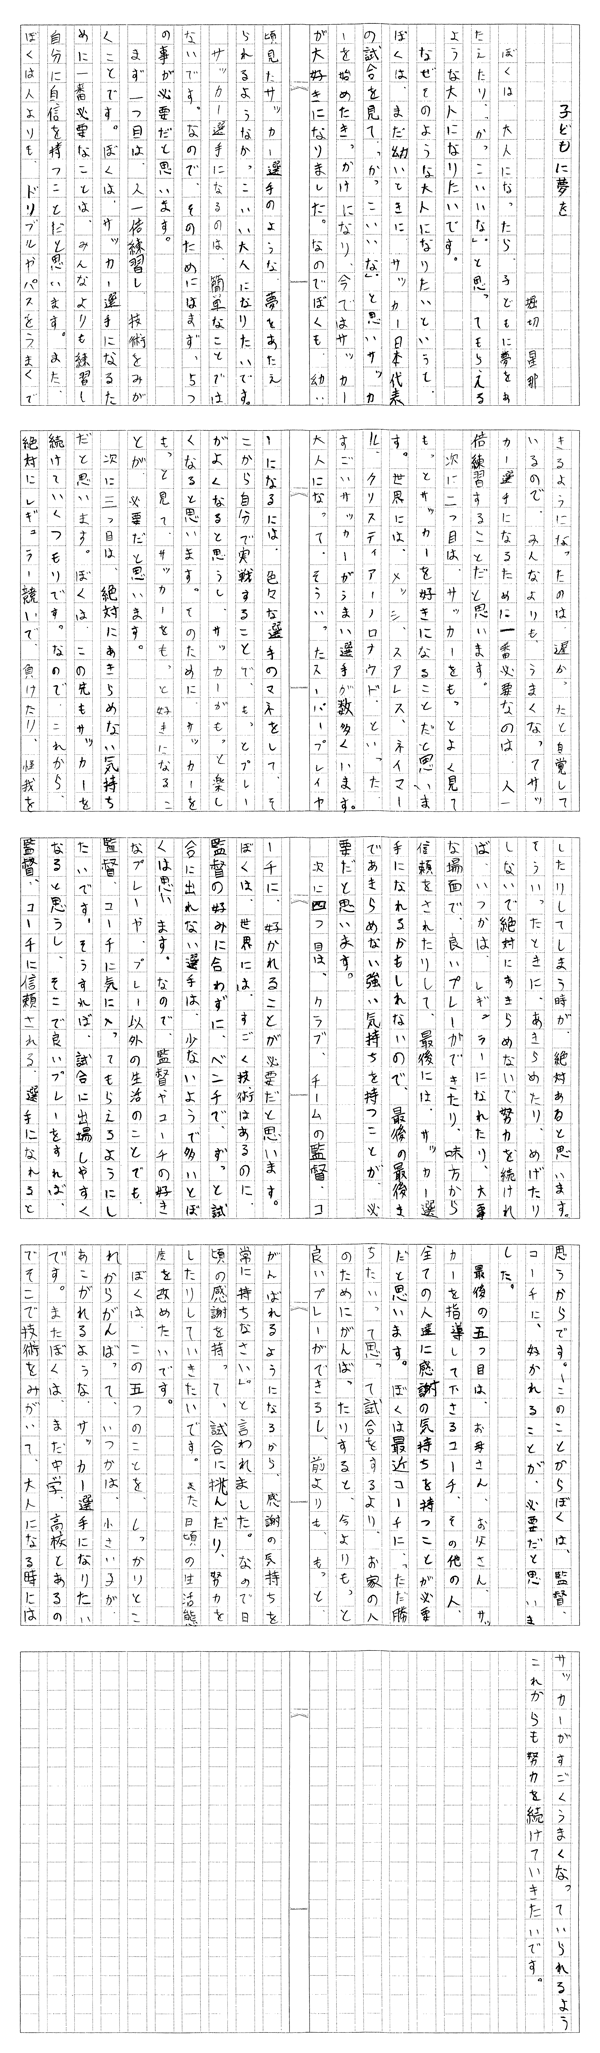 子どもに夢を
堀切　星那
ぼくは、大人になったら、子どもに夢をあ
たえたり、「かっこいいな」と思ってもらえる
ような大人になりたいです。
なぜそのような大人になりたいというと、
ぼくは、まだ幼いときに、サッカー日本代表
の試合を見て、「かっこいいな」と思いサッカ
ーを始めたきっかけになり、今ではサッカー
が大好きになりました。なのでぼくも、幼い
頃見たサッカー選手のような、夢をあたえ
られるようなかっこいい大人になりたいです。
サッカー選手になるのは、簡単なことでは
ないです。なので、そのためにはまず、5つ
の事が必要だと思います。
まず一つ目は、人一倍練習し、技術をみが
くことです。ぼくは、サッカー選手になるた
めに一番必要なことは、みんなよりも練習し
自分に自信を持つことだと思います。また、
ぼくは人よりも、ドリブルやパスをうまくで
きるようになったのは、遅かったと自覚して
いるので、みんなよりも、うまくなってサッ
カー選手になるために一番必要なのは、人一
倍練習することだと思います。
次に二つ目は、サッカーをもっとよく見て
もっとサッカーを好きになることだと思いま
す。世界には、メッシ、スアレス、ネイマー
ル、クリスティアーノロナウド、といった、
すごいサッカーがうまい選手が数多くいます。
大人になって、そういったスーパープレイヤ
ーになるには、色々な選手のマネをして、そ
こから自分で実戦することで、もっとプレー
がよくなると思うし、サッカーがもっと楽し
くなると思います。そのために、サッカーを
もっと見て、サッカーをもっと好きになるこ
とが、必要だと思います。
次に三つ目は、絶対にあきらめない気持ち
だと思います。ぼくは、この先もサッカーを
続けていくつもりです。なので、これから、
絶対にレギュラー競いで、負けたり、怪我を
したりしてしまう時が、絶対あると思います。
そういったときに、あきらめたり、めげたり
しないで絶対にあきらめないで努力を続けれ
ば、いつかは、レギュラーになれたり、大事
な場面で、良いプレーができたり、味方から
信頼をされたりして、最後には、サッカー選
手になれるかもしれないので、最後の最後ま
であきらめない強い気持ちを持つことが、必
要だと思います。
次に四つ目は、クラブ、チームの監督、コ
ーチに、好かれることが必要だと思います。
ぼくは、世界には、すごく技術はあるのに、
監督の好みに合わずに、ベンチで、ずっと試
合に出れない選手は、少ないようで多いとぼ
くは思います。なので、監督やコーチの好き
なプレーや、プレー以外の生活のことでも、
監督、コーチに気に入ってもらえるようにし
たいです。そうすれば、試合に出場しやすく
なると思うし、そこで良いプレーをすれば、
監督、コーチに信頼される、選手になれると
思うからです。このことからぼくは、監督、
コーチに、好かれることが、必要だと思いま
した。
最後の五つ目は、お母さん、お父さん、サッ
カーを指導して下さるコーチ、その他の人、
全ての人達に感謝の気持ちを持つことが必要
だと思います。ぼくは最近コーチに、「ただ勝
ちたいって思って試合をするより、お家の人
のためにがんばったりすると、今よりもっと
良いプレーができるし、前よりも、もっと、
がんばれるようになるから、感謝の気持ちを
常に持ちなさい。」と言われました。なので日
頃の感謝を持って、試合に挑んだり、努力を
したりしていきたいです。また日頃の生活態
度を改めたいです。
ぼくは、この五つのことを、しっかりとこ
れからがんばって、いつかは、小さい子が、
あこがれるような、サッカー選手になりたい
です。またぼくは、まだ中学、高校とあるの
でそこで技術をみがいて、大人になる時には
サッカーがすごくうまくなっていられるよう
これからも努力を続けていきたいです。